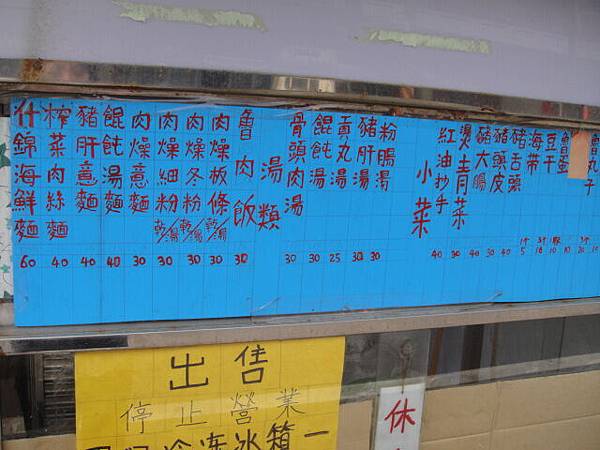 什錦海鮮麵 60
榨菜肉絲麵 40
豬肝意麵 40
餛飩湯麵 40
肉燥意麵 30
肉燥細粉 乾/湯 30
肉燥冬粉 乾/湯 30
肉燥板條 乾/湯 30
魯肉飯 30
湯類
骨頭肉湯 30
餛飩湯 30
貢丸湯 25
豬肝湯 30
粉腸湯 30
小菜
紅油抄手 40
燙青菜 30
豬大腸 40
豬頭皮 30
豬舌頭 40
海帶 5
豆干 10
魯蛋 10
魯丸子
出售
停止營業
冷凍冰箱一
休